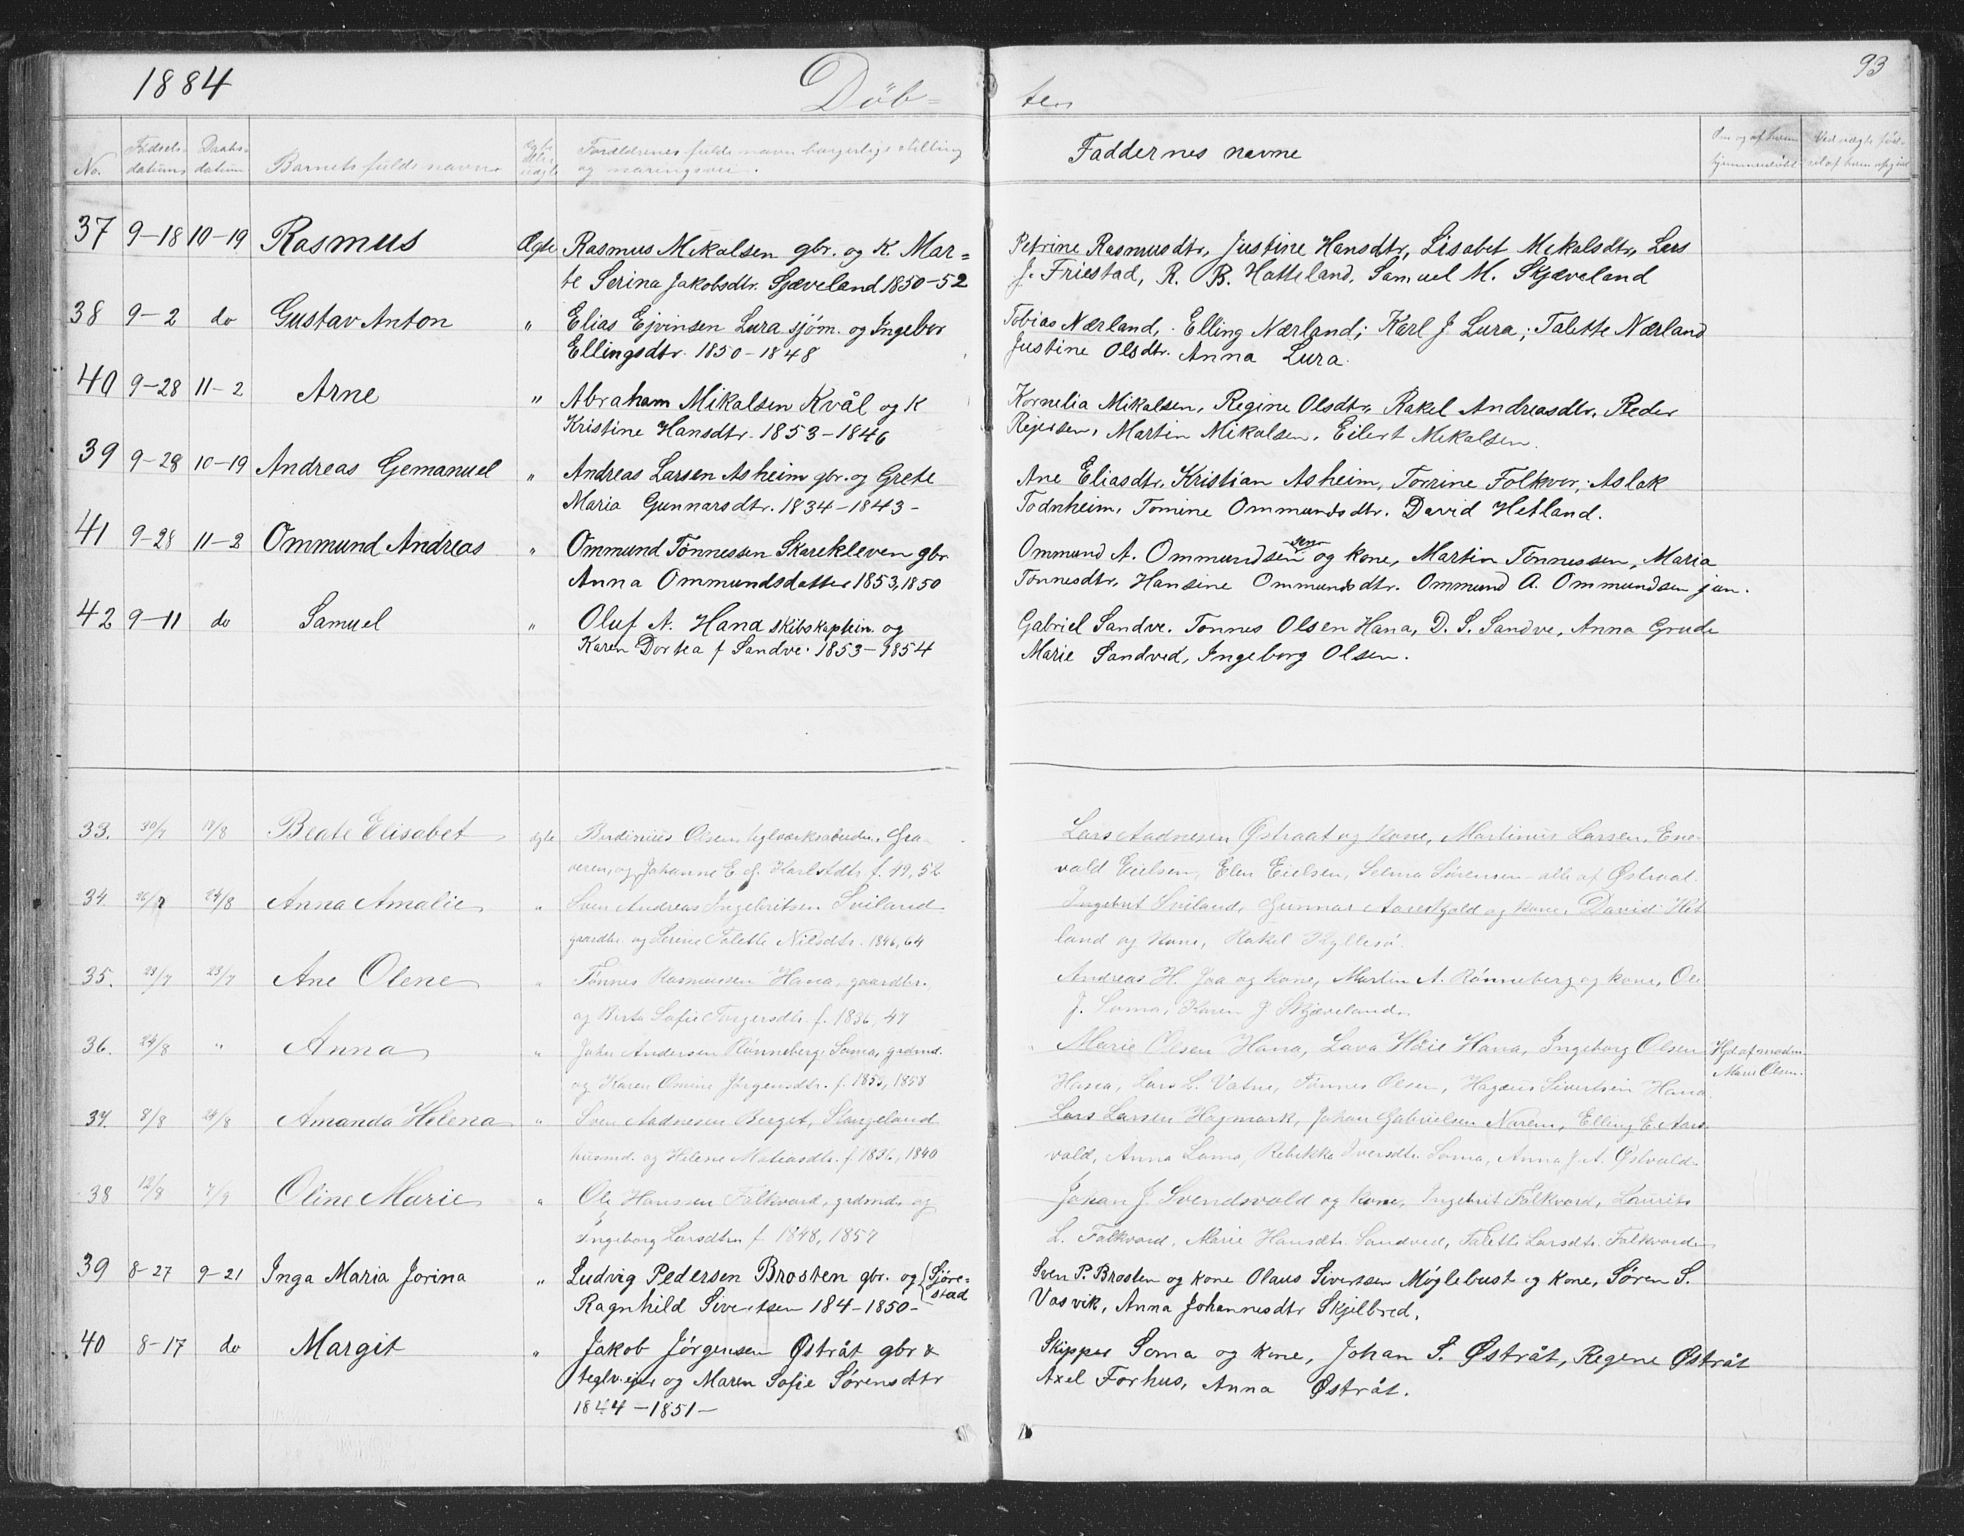 1884 Døb= ter 93
No. Fødsels- datum Daabs- datum Barnets fulde navn Forældrenes fulde navn borgerlige stilling og næringsvei. Faddernes navne
37 9-18 10-19 Rasmus Ægte Rasmus Mikalsen gbr. og K. Mar= Petrine Rasmusdtr, Justine Hansdtr, Lisabet Mikalsdtr, Lars
te Serina Jakobsdtr. Sjæveland 1850-52 J. Friestad, R. B. Hatteland, Samuel M. Skjæveland
38 9-2 do Gustav Anton " Elias Ejvinsen Lura sjøm. og Ingebor Tobias Nærland, Elling Nærland; Karl J. Lura; Talette Nærland
Ellingsdtr. 1850-1848 Justine Olsdtr. Anna Lura.
40 9-28 11-2 Arne " Abraham Mikalsen Kvål og K Kornelia Mikalsen, Regine Olsdtr, Rakel Andreasdtr, Reder
Kristine Hansdtr. 1853-1846 Rejersen, Martin Mikalsen, Eilert Mikalsen.
39 9-28 10-19 Andreas Gemanuel " Andreas Larsen Asheim gbr. og Grete Ane Eliasdtr, Kristian Asheim, Torrine Folkvor, Aslak
Maria Gunnarsdtr. 1834-1843- Todnheim, Tomine Ommundsdtr. David Hetland.
41 9-28 11-2 Ommund Andreas " Ommund Tønnessen Skarekleven gbr Ommund A. Ommundsen sen og kone, Martin Tønnessen, Maria
Anna Ommundsdatter 1853, 1850 Tønnesdtr, Hansine Ommundsdtr. Ommund A. Ommundsen jun.
42 9-11 do Samuel " Oluf A. Hana skibskaptein og Gabriel Sandve. Tønnes Olsen Hana, D. S. Sandve, Anna Grude
Karen Dortea f Sandve. 1853-1854 Marie Sandved, Ingeborg Olsen.
33. 30/7 Beate Elisabet ægte Olsen, Gra- Lars Aadnesen Østraat og kone, Martinus Larsen, Ene-
veren, og Johanne E. f. Karlsdtr f. 49, 52 vald Eielsen, Elen Eielsen, Selma Sørensen - alle af Østraat.
34 24/8 Anna Amalie " Sven Andreas Ingebritsen Sviland Ingebrit Sviland, Gunnar og kone, David Het-
gaardbr. og Serine Talette Nilsdtr. 1846, 64 land og kone, Rakel Kyllesø.
35. 23/7 23/7 Ane Olene " Tønnes Rasmussen Hana, gaardbr. Andreas H. Joa og kone, Martin A. Rønneberg og kone, Ole
og Berta Sofie Torgersdtr. f. 1836, 47 J. Soma, Karen J. Skjæveland.
36. 24/8 " Anna " John Andersen Rønneberg, Soma, grdmd. Marie Olsen Hana, Lava Høie Hana, Ingeborg Olsen Hjd af madm
og Karen Osmine Jørgensdtr. f. 1855, 1858 Hana, Lars L. Vatne, Tønnes Olsen, Sivertsen Hana. Marie Olsen.
37. 8/8 24/8 Amanda Helena " Sven Aadnesen Berget, Stangeland Lars Larsen Hagmark, Johan Gabrielsen Norem, Elling E. Aars-
husmd. og Helene Matiasdtr. f. 1836, 1840 vold, Anna Soma, Rebekka Iversdtr. Soma, Anna J. A. Østvold
38 12/8 7/9 Oline Marie " Ole Hanssen Falkvard, grdmd. og Johan J. Svendsvold og kone, Ingebrit Falkvard, Laurits
Ingeborg Larsdtr. f. 1848, 1857 L. Falkvard, Marie Hansdtr. Sandved, Talette Larsdtr. Falkvard
39 8-27 9-21 Inga Maria Jorina " Ludvig Pedersen Brosten gbr. og (Sjøre- Sven P. Brosten og kone Olaus Sivertsen Møglebust og kone, Søren S.
stad Ragnhild Sivertsen 184-1850- Vasvik, Anna Johannesdtr Skjelbred.
40 8-17 do Margit " Jakob Jørgensen Østråt gbr & Skipper Soma og kone, Johan S. Østråt, Regene Østråt
teglvejer og Maren Sofie Sørensdtr Axel Forhus, Anna Østråt.
1844-1851-